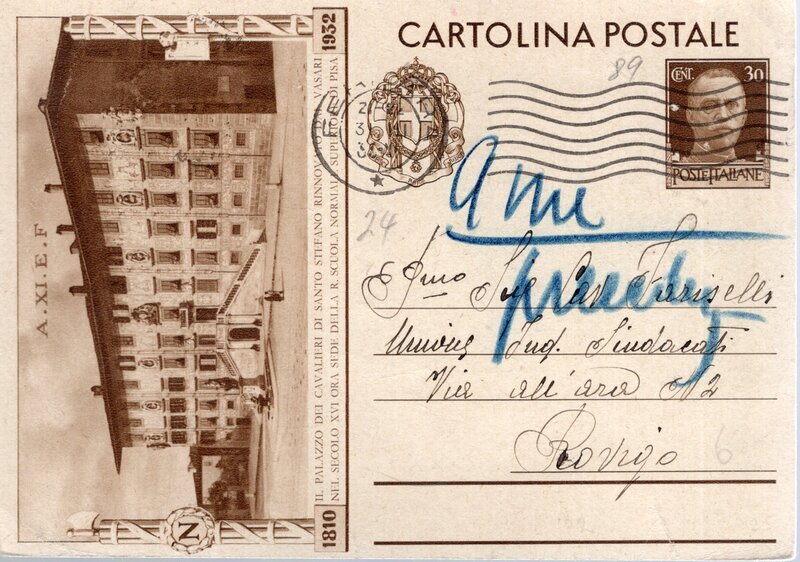 CARTOLINA POSTALE
89
CENT. 30
POSTE ITALIANE
FE
24
A me
Sig Cav Fariselli
Unione Ing. Sindacati
Via all'ara N 2
Rovigo
6
A. XI. E. F
1810 IL PALAZZO DEI CAVALIERI DI SANTO STEFANO RINNOVATO DAL VASARI 1932
NEL SECOLO XVI ORA SEDE DELLA R. SCUOLA NORMALE SUPERIORE DI PISA
N